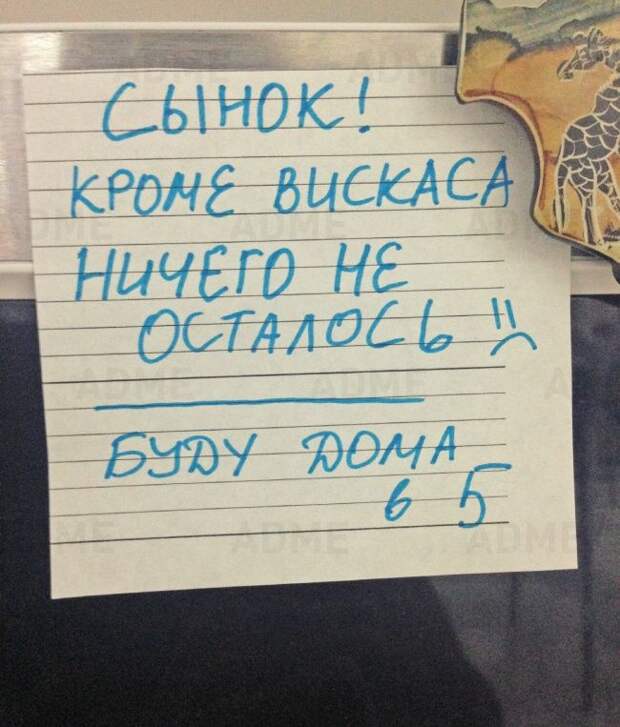 СЫНОК!
КРОМЕ ВИСКАСА
НИЧЕГО НЕ
ОСТАЛОСЬ :(
БУДУ ДОМА
в 5
ADME
ADME
ADME
ADME
ADME
ADME
ADME